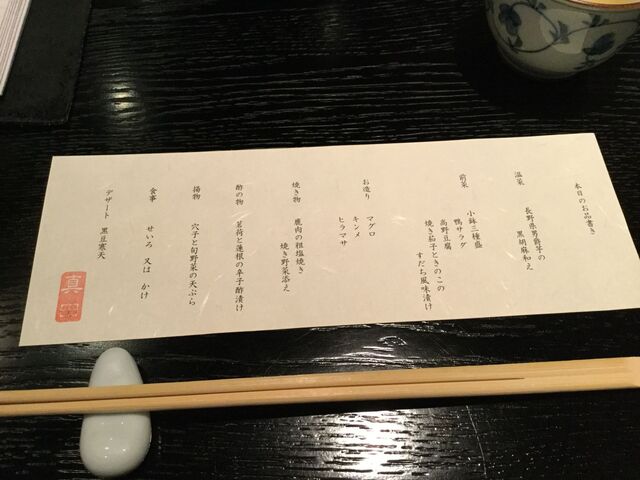 本日のお品書き
温菜 長野県男爵芋の
黒胡麻和え
前菜 小鉢三種盛
鴨サラダ
高野豆腐
焼き茄子ときのこの
すだち風味漬け
お造り マグロ
キンメ
ヒラマサ
焼き物 鹿肉の粗塩焼き
焼き野菜添え
酢の物 茗荷と蓮根の辛子酢漬け
揚物 穴子と旬野菜の天ぷら
食事 せいろ 又は かけ
デザート 黒豆寒天
真